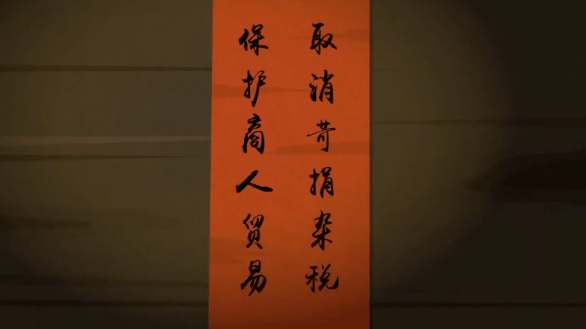 取消苛捐杂税
保护商人贸易